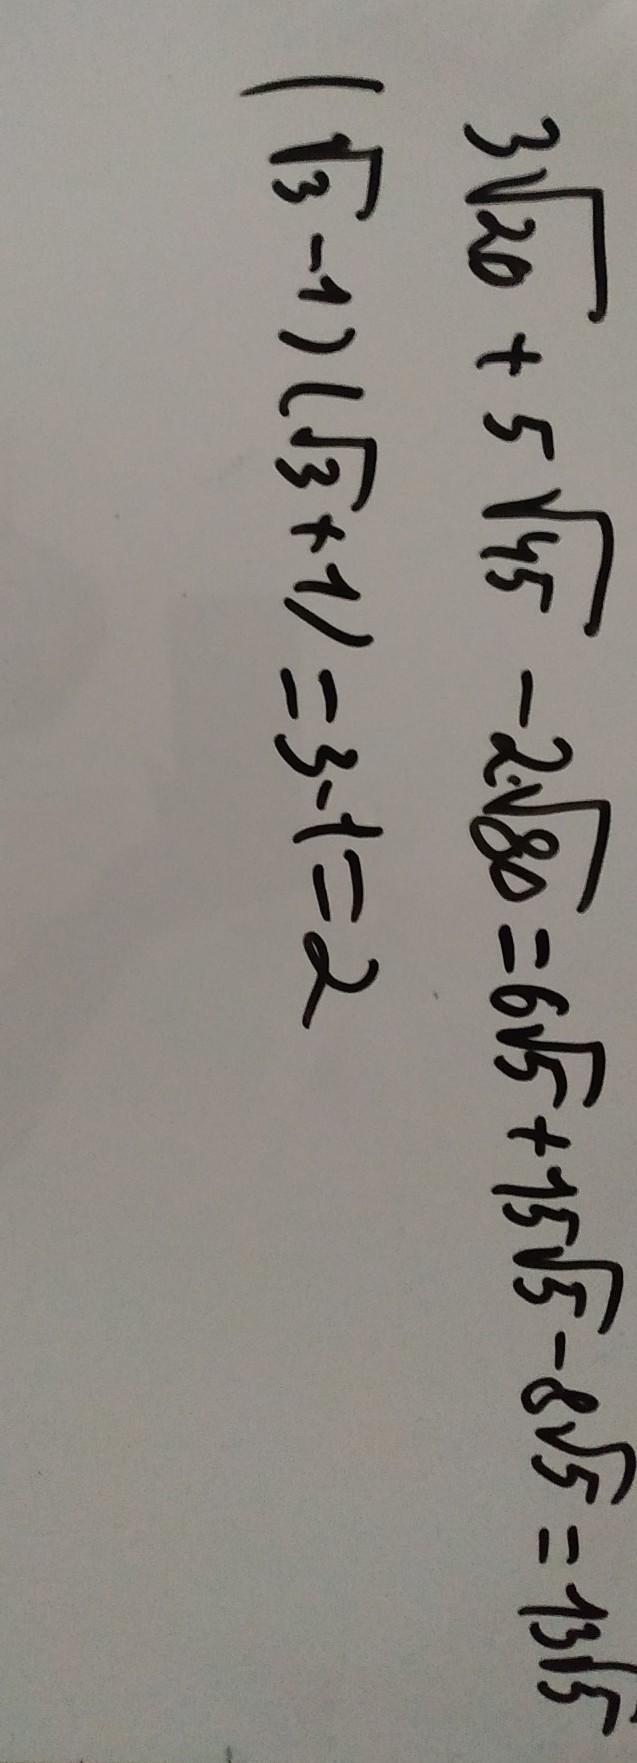 3√20 + 5√45 - 2·√80 = 6√5 + 15√5 - 8√5 = 13√5
(√3 - 1)(√3 + 1) = 3 - 1 = 2